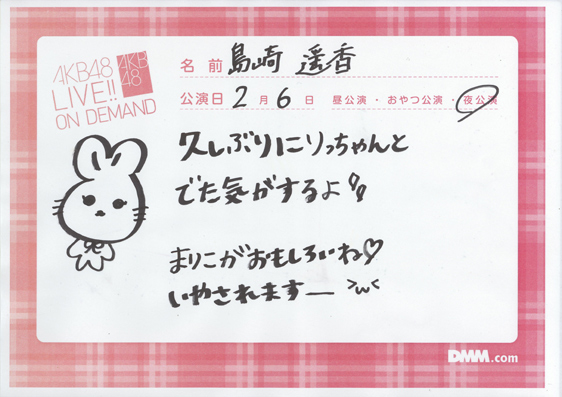 AKB48
LIVE!!
ON DEMAND
AKB
48
名前 島崎 遥香
公演日 2月6日 昼公演・おやつ公演・夜公演
久しぶりにりっちゃんと
でた気がするよ!!
まりこがおもしろいね♡
いやされますー >w<
DMM.com